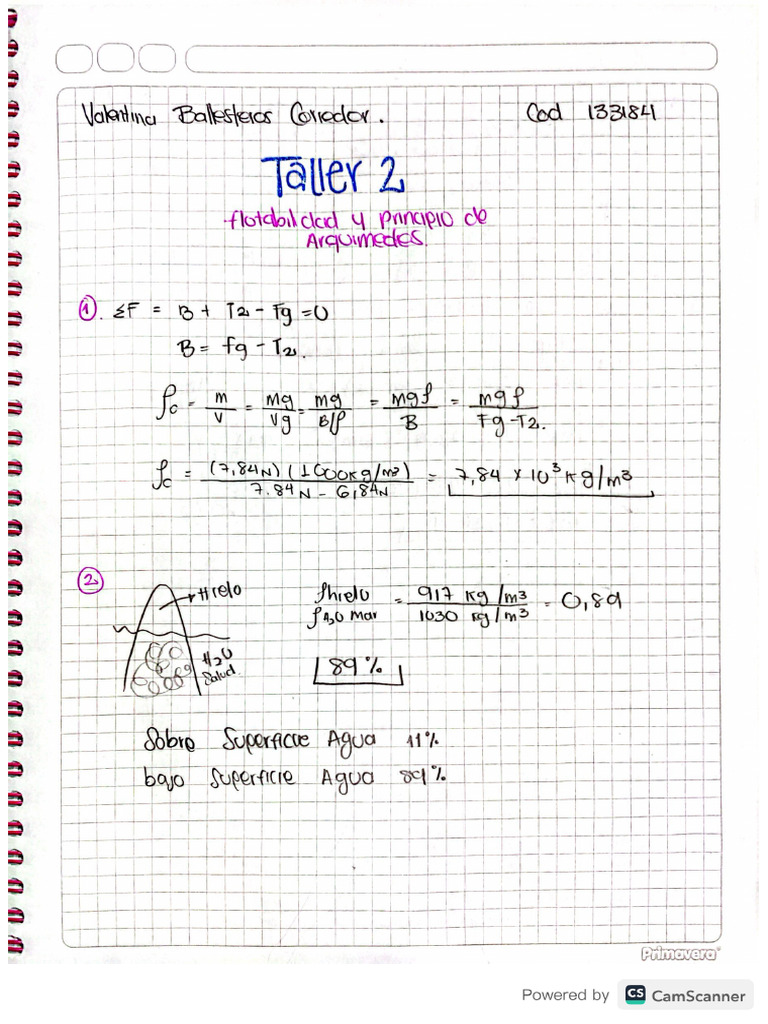 Valentina Ballesteros Corredor. Cod 133184
Taller 2
flotabilidad y principio de
Arquimedes.
1. ΣF = B + T2 - Fg = 0
B = Fg - T2.
ρc = m/V = mg/Vg = mg/B/ρ = mgρ/B = mgρ/Fg-T2.
ρc = (7,84N) (1000kg/m³)/7.84N - 6,84N = 7,84 x 10³ kg/m³
2.
Hielo
H2O
Salud.
ρhielo/ρH2O Mar = 917 kg/m³/1030 kg/m³ = 0,89
89%
Sobre Superficie Agua 11%
bajo Superficie Agua 89%
Primavera
Powered by CS CamScanner